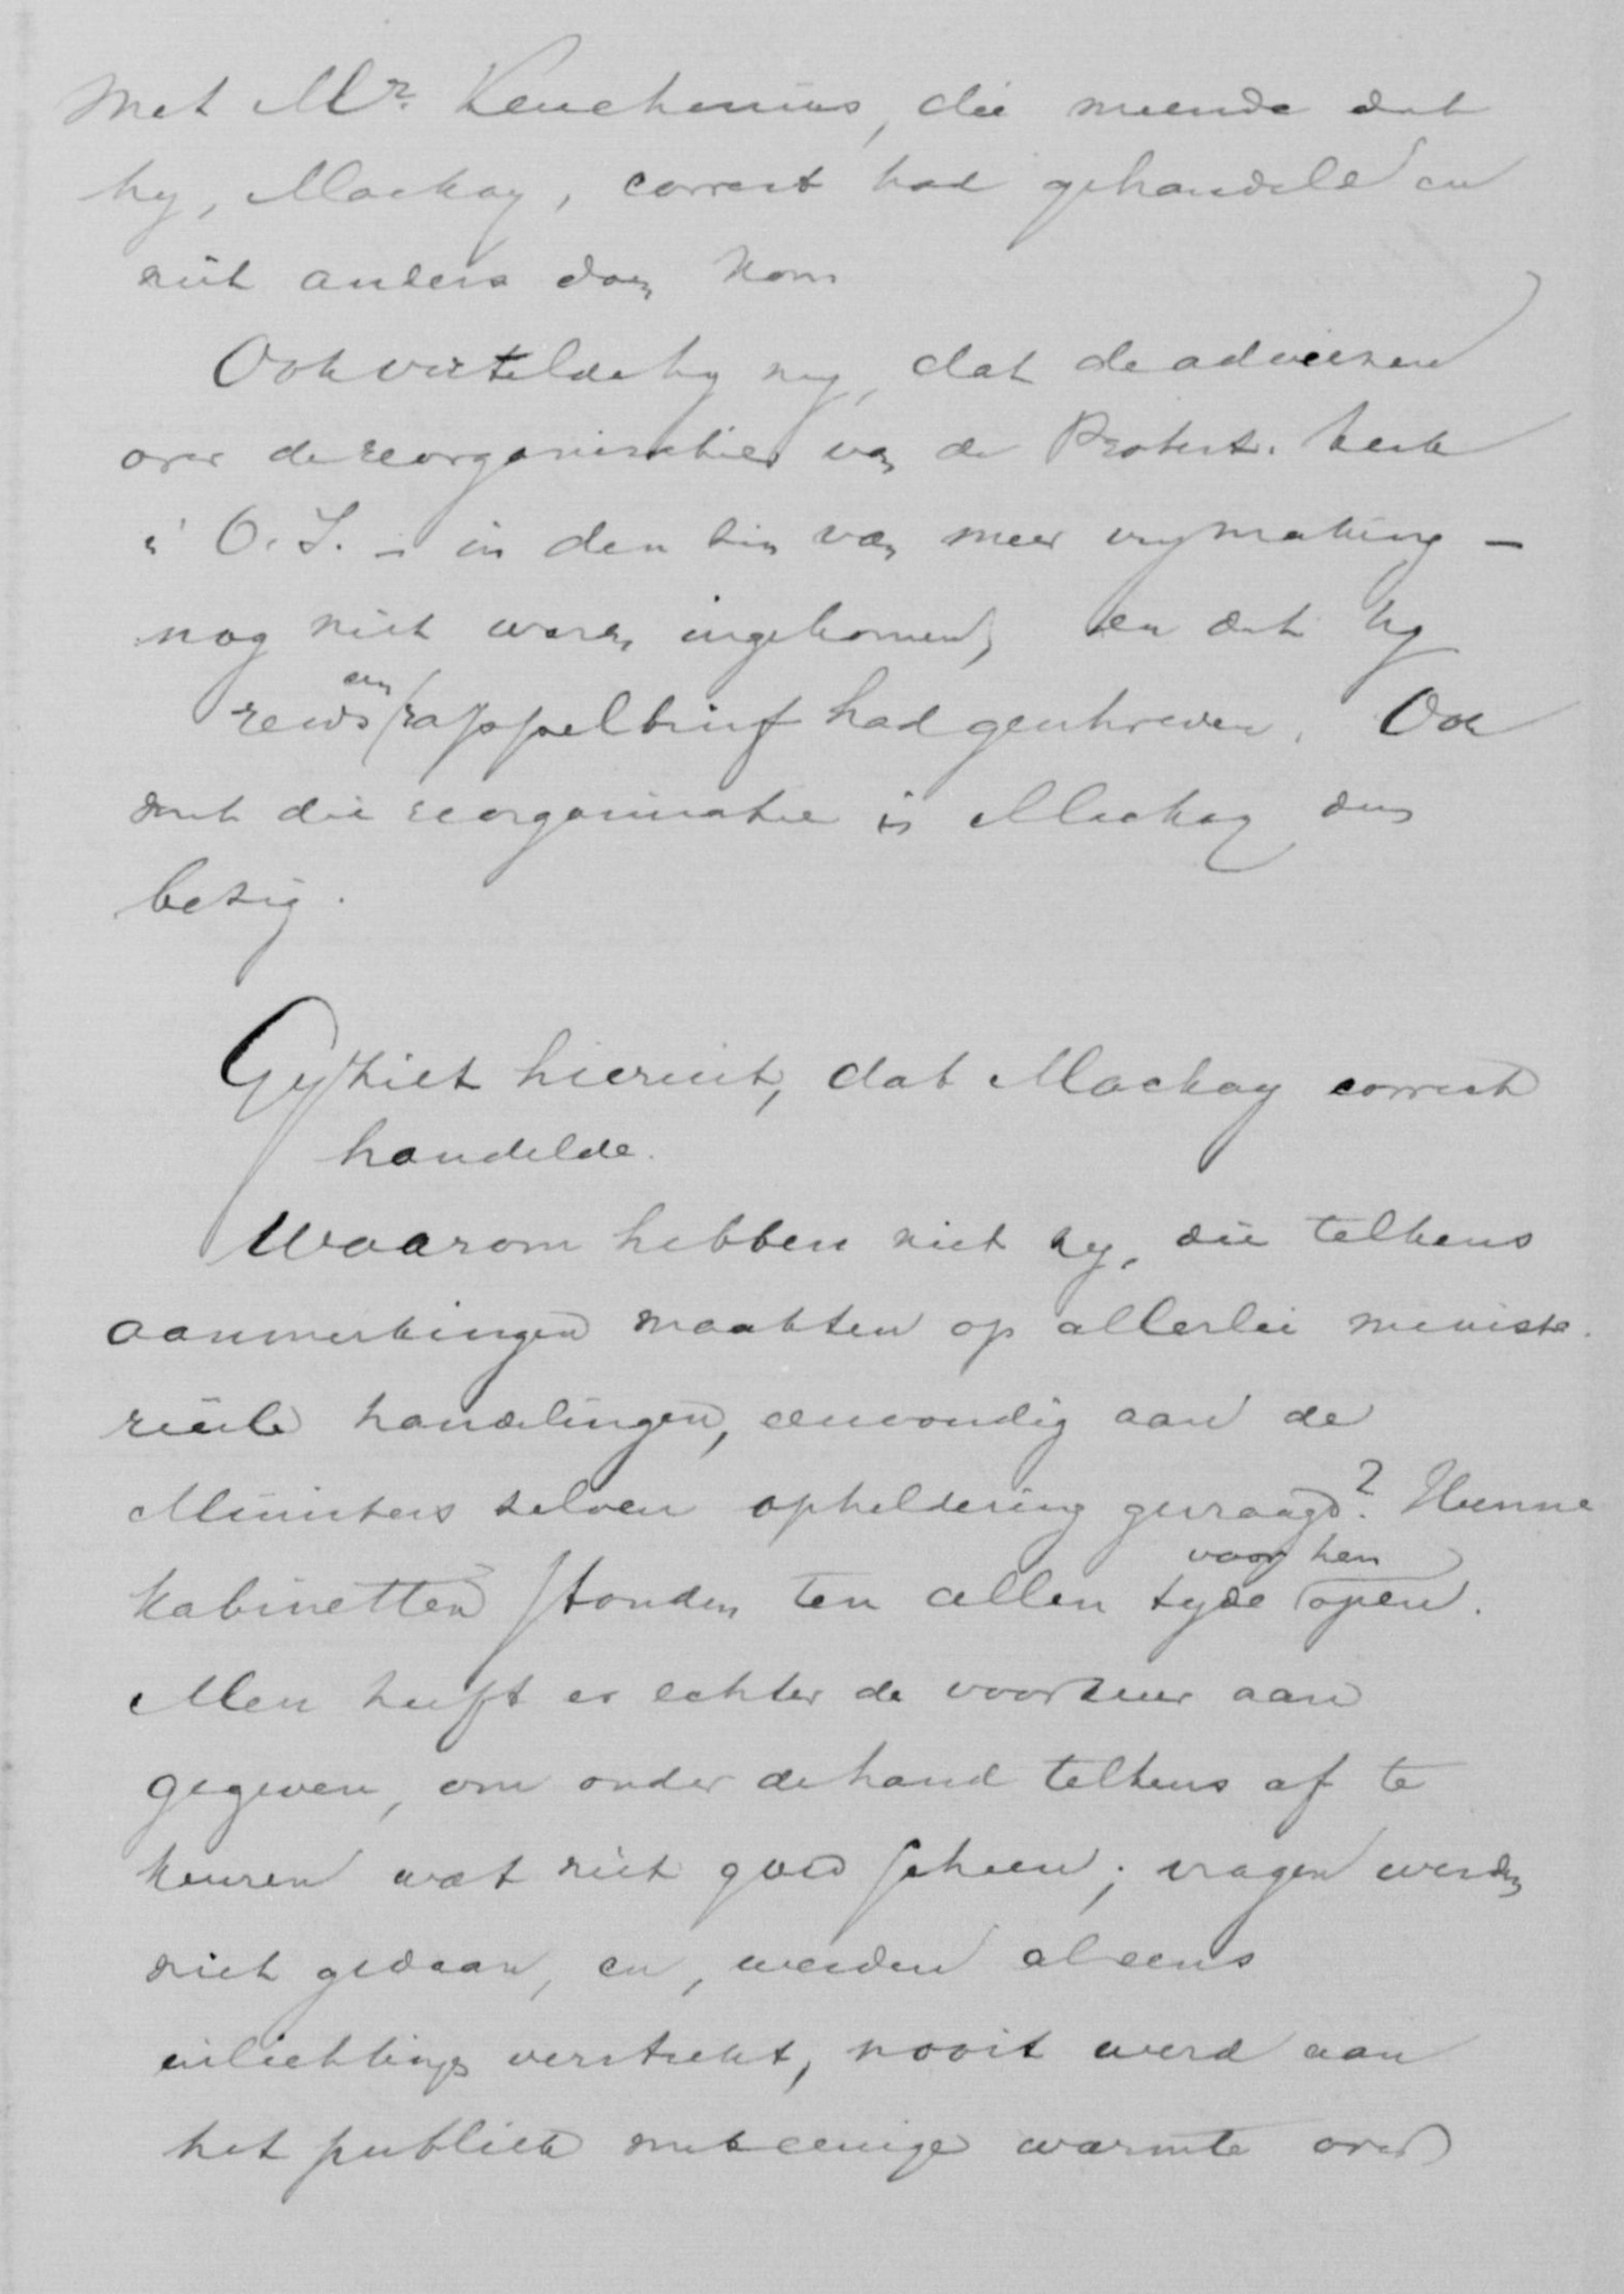 met Mr. Keuchenius, die meende dat
hy, Mackay, correct had gehandeld en
niet anders doen kon
Ook vertelde hy my, dat de adviezen
over de reorganisatie van de Protest. kerk
in O.I. – in den zin van meer vrymaking –
nog niet waren ingekomen, en dat hy
reeds een rappelbrief had geschreven. Ook
met die reorganisatie is Mackay dus
bezig.
Gy ziet hieruit, dat Mackay correct
handelde.
Waarom hebben niet zy, die telkens
aanmerkingen maakten op allerlei ministe-
rieele handelingen, eenvoudig aan de
Ministers zelven opheldering gevraagd? Hunne
kabinetten stonden ten allen tyde voor hen open.
Men heeft er echter de voorkeur aan
gegeven, om onder de hand telkens af te
keuren wat niet goed scheen; vragen werden
niet gedaan, en, werden al eens
inlichtingen verstrekt, nooit werd aan
het publiek met eenige warmte over